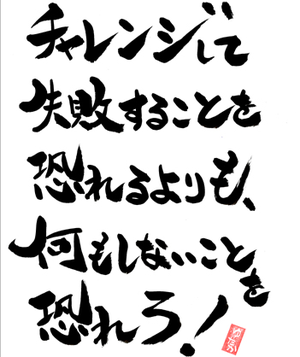 チャレンジして
失敗することを
恐れるよりも、
何もしないことを
恐れろ!